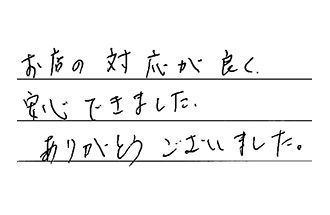 お店の対応が良く、
安心できました。
ありがとうございました。